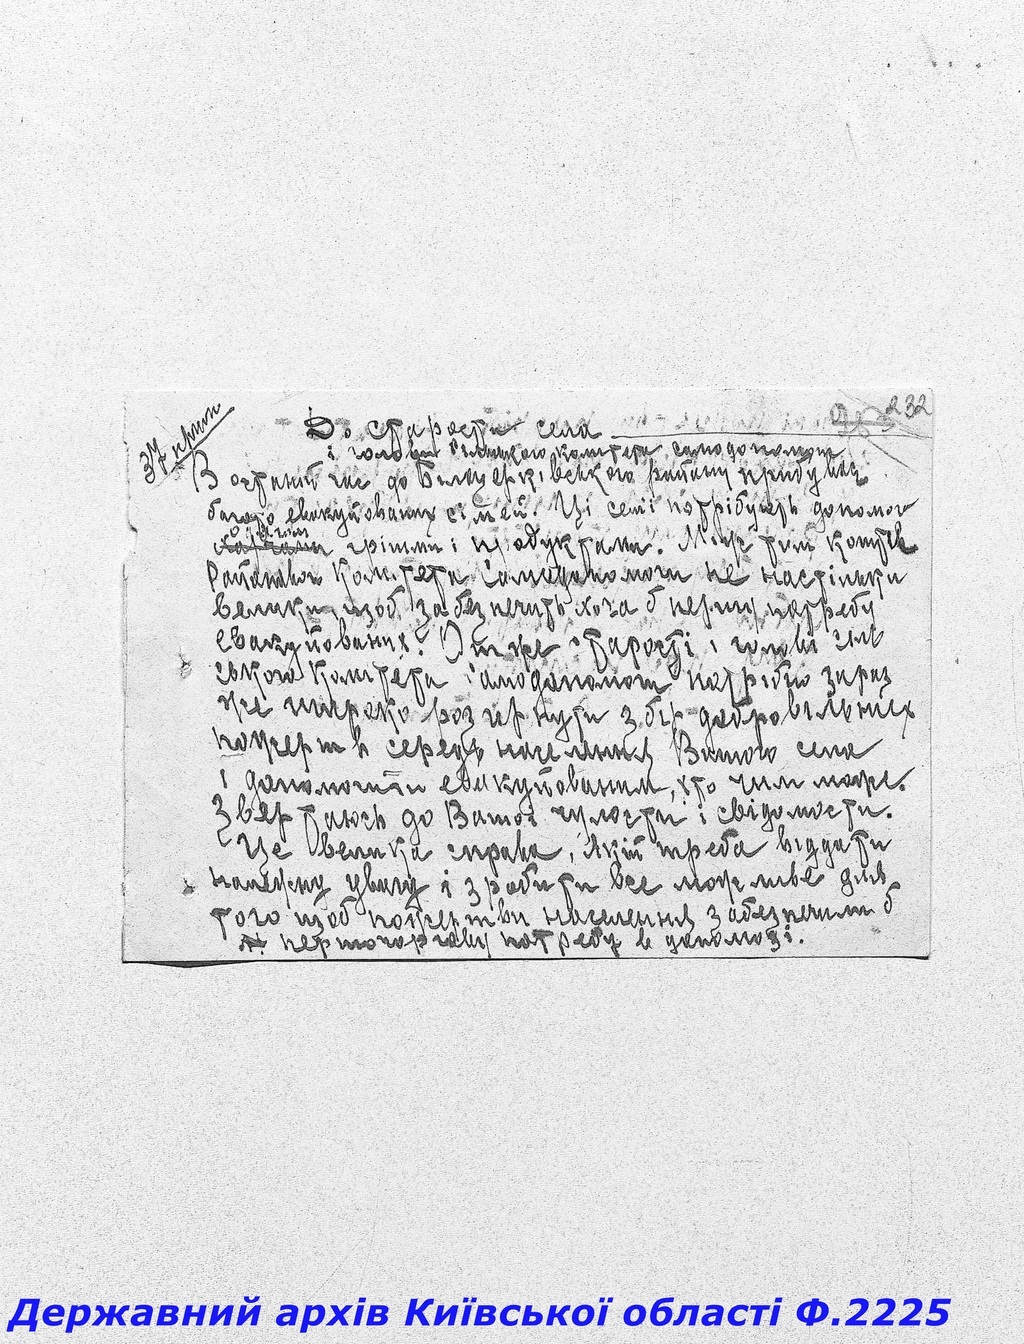 232
37 прим
До старости села
і голови сільського комітета самодопомоги
В останій час до Білоцерківського району прибули
багато евакуйованих сімей. Ці семі потрібують допомог
одягом грішми і продуктами. Між тим коштів
Районвого Комітета Самодопомоги не настільки
великі щоб забезпечить хоча б першу потребу
евакуйованих. Отже старості і голові сіль
ського Комітета Самодопомоги потрібно зараз
же широко розгорнути збір добровільних
пожертв серед населення Вашого села
і допомогти евакуйованим, хто чим може.
Звертаюсь до Вашої чулости і свідомости.
Це велика справа, якій треба віддати
належну увагу і зробити все можливе для
того щоб пожертви населення забезпечили б
першочергову потребу в допомозі.
Державний архів Київської області Ф.2225